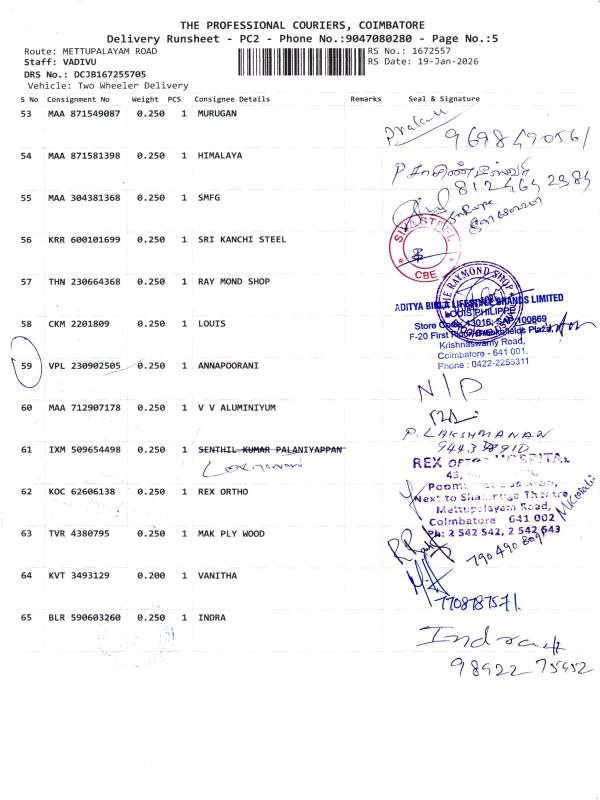 THE PROFESSIONAL COURIERS, COIMBATORE
Delivery Runsheet - PC2 - Phone No.:9047080280 - Page No.:5
Route: METTUPALAYAM ROAD
RS No.: 1672557
Staff: VADIVU
RS Date: 19-Jan-2026
DRS No.: DCJB167255705
Vehicle: Two Wheeler Delivery
S No Consignment No Weight PCS Consignee Details Remarks Seal & Signature
53 MAA 871549087 0.250 1 MURUGAN
9698490561
54 MAA 871581398 0.250 1 HIMALAYA
8124642384
55 MAA 304381368 0.250 1 SMFG
56 KRR 600101699 0.250 1 SRI KANCHI STEEL
CBE
57 THN 230664368 0.250 1 RAY MOND SHOP
THE RAYMOND SHOP
ADITYA BIRLA LIFESTYLE BRANDS LIMITED
LOUIS PHILIPPE
58 CKM 2201809 0.250 1 LOUIS
Store Code 43016, SAP 100869
F-20 First Floor, Brookefields Plaza,
Krishnaswamy Road,
Coimbatore - 641 001.
Phone : 0422-2255311
59 VPL 230902505 0.250 1 ANNAPOORANI
N/P
60 MAA 712907178 0.250 1 V V ALUMINIYUM
P. LAKSHMANAN
61 IXM 509654498 0.250 1 SENTHIL KUMAR PALANIYAPPAN
Laxmanan
REX ORTHO HOSPITAL
62 KOC 62606138 0.250 1 REX ORTHO
Next to Shanmuga Theatre,
Mettupalayam Road,
Coimbatore 641 002
Ph: 2 542 542, 2 542 643
63 TVR 4380795 0.250 1 MAK PLY WOOD
64 KVT 3493129 0.200 1 VANITHA
7708787571
65 BLR 590603260 0.250 1 INDRA
Indra
98422 75452